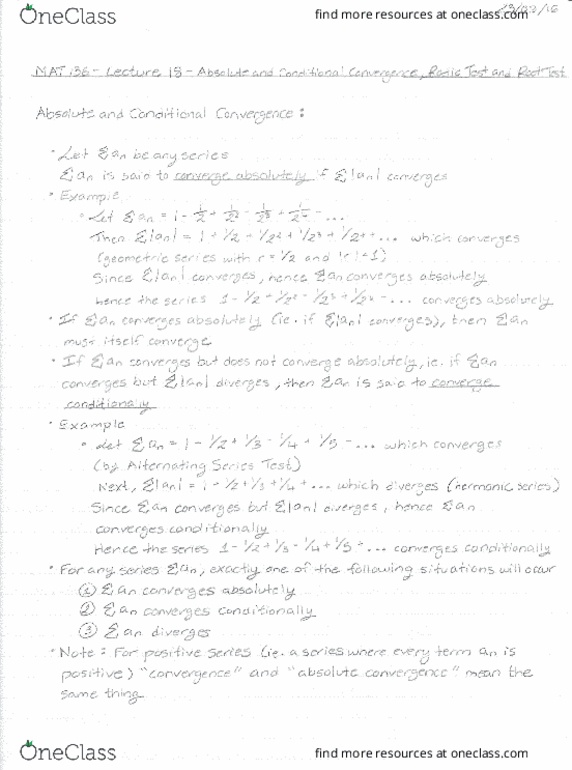 OneClass
find more resources at oneclass.com
MAT 136 - Lecture 18 - Absolute and Conditional Convergence, Ratio Test and Root Test
Absolute and Conditional Convergence :
• Let Σan be any series
Σan is said to converge absolutely if Σ|an| converges
• Example
• Let Σan = 1 - 1/2 + 1/2² - 1/2³ + 1/2⁴ - ...
Then Σ|an| = 1 + 1/2 + 1/2² + 1/2³ + 1/2⁴ + ... which converges
(geometric series with r = 1/2 and |r| < 1)
Since Σ|an| converges, hence Σan converges absolutely
hence the series 1 - 1/2 + 1/2² - 1/2³ + 1/2⁴ - ... converges absolutely
• If Σan converges absolutely (ie. if Σ|an| converges), then Σan
must itself converge
• If Σan converges but does not converge absolutely, ie. if Σan
converges but Σ|an| diverges, then Σan is said to converge
conditionally
• Example
• Let Σan = 1 - 1/2 + 1/3 - 1/4 + 1/5 - ... which converges
(by Alternating Series Test)
Next, Σ|an| = 1 - 1/2 + 1/3 + 1/4 + ... which diverges (harmonic series)
Since Σan converges but Σ|an| diverges, hence Σan
converges conditionally
Hence the series 1 - 1/2 + 1/3 - 1/4 + 1/5 - ... converges conditionally
• For any series Σan, exactly one of the following situations will occur
① Σan converges absolutely
② Σan converges conditionally
③ Σan diverges
• Note : For positive series (ie. a series where every term an is
positive) "convergence" and "absolute convergence" mean the
same thing.
OneClass
find more resources at oneclass.com